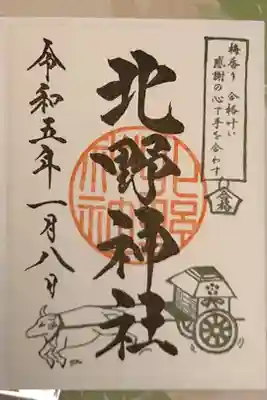 梅香り 合格叶い
感謝の心で手を合わす
合格
北野神社
令和五年一月八日
北野神社